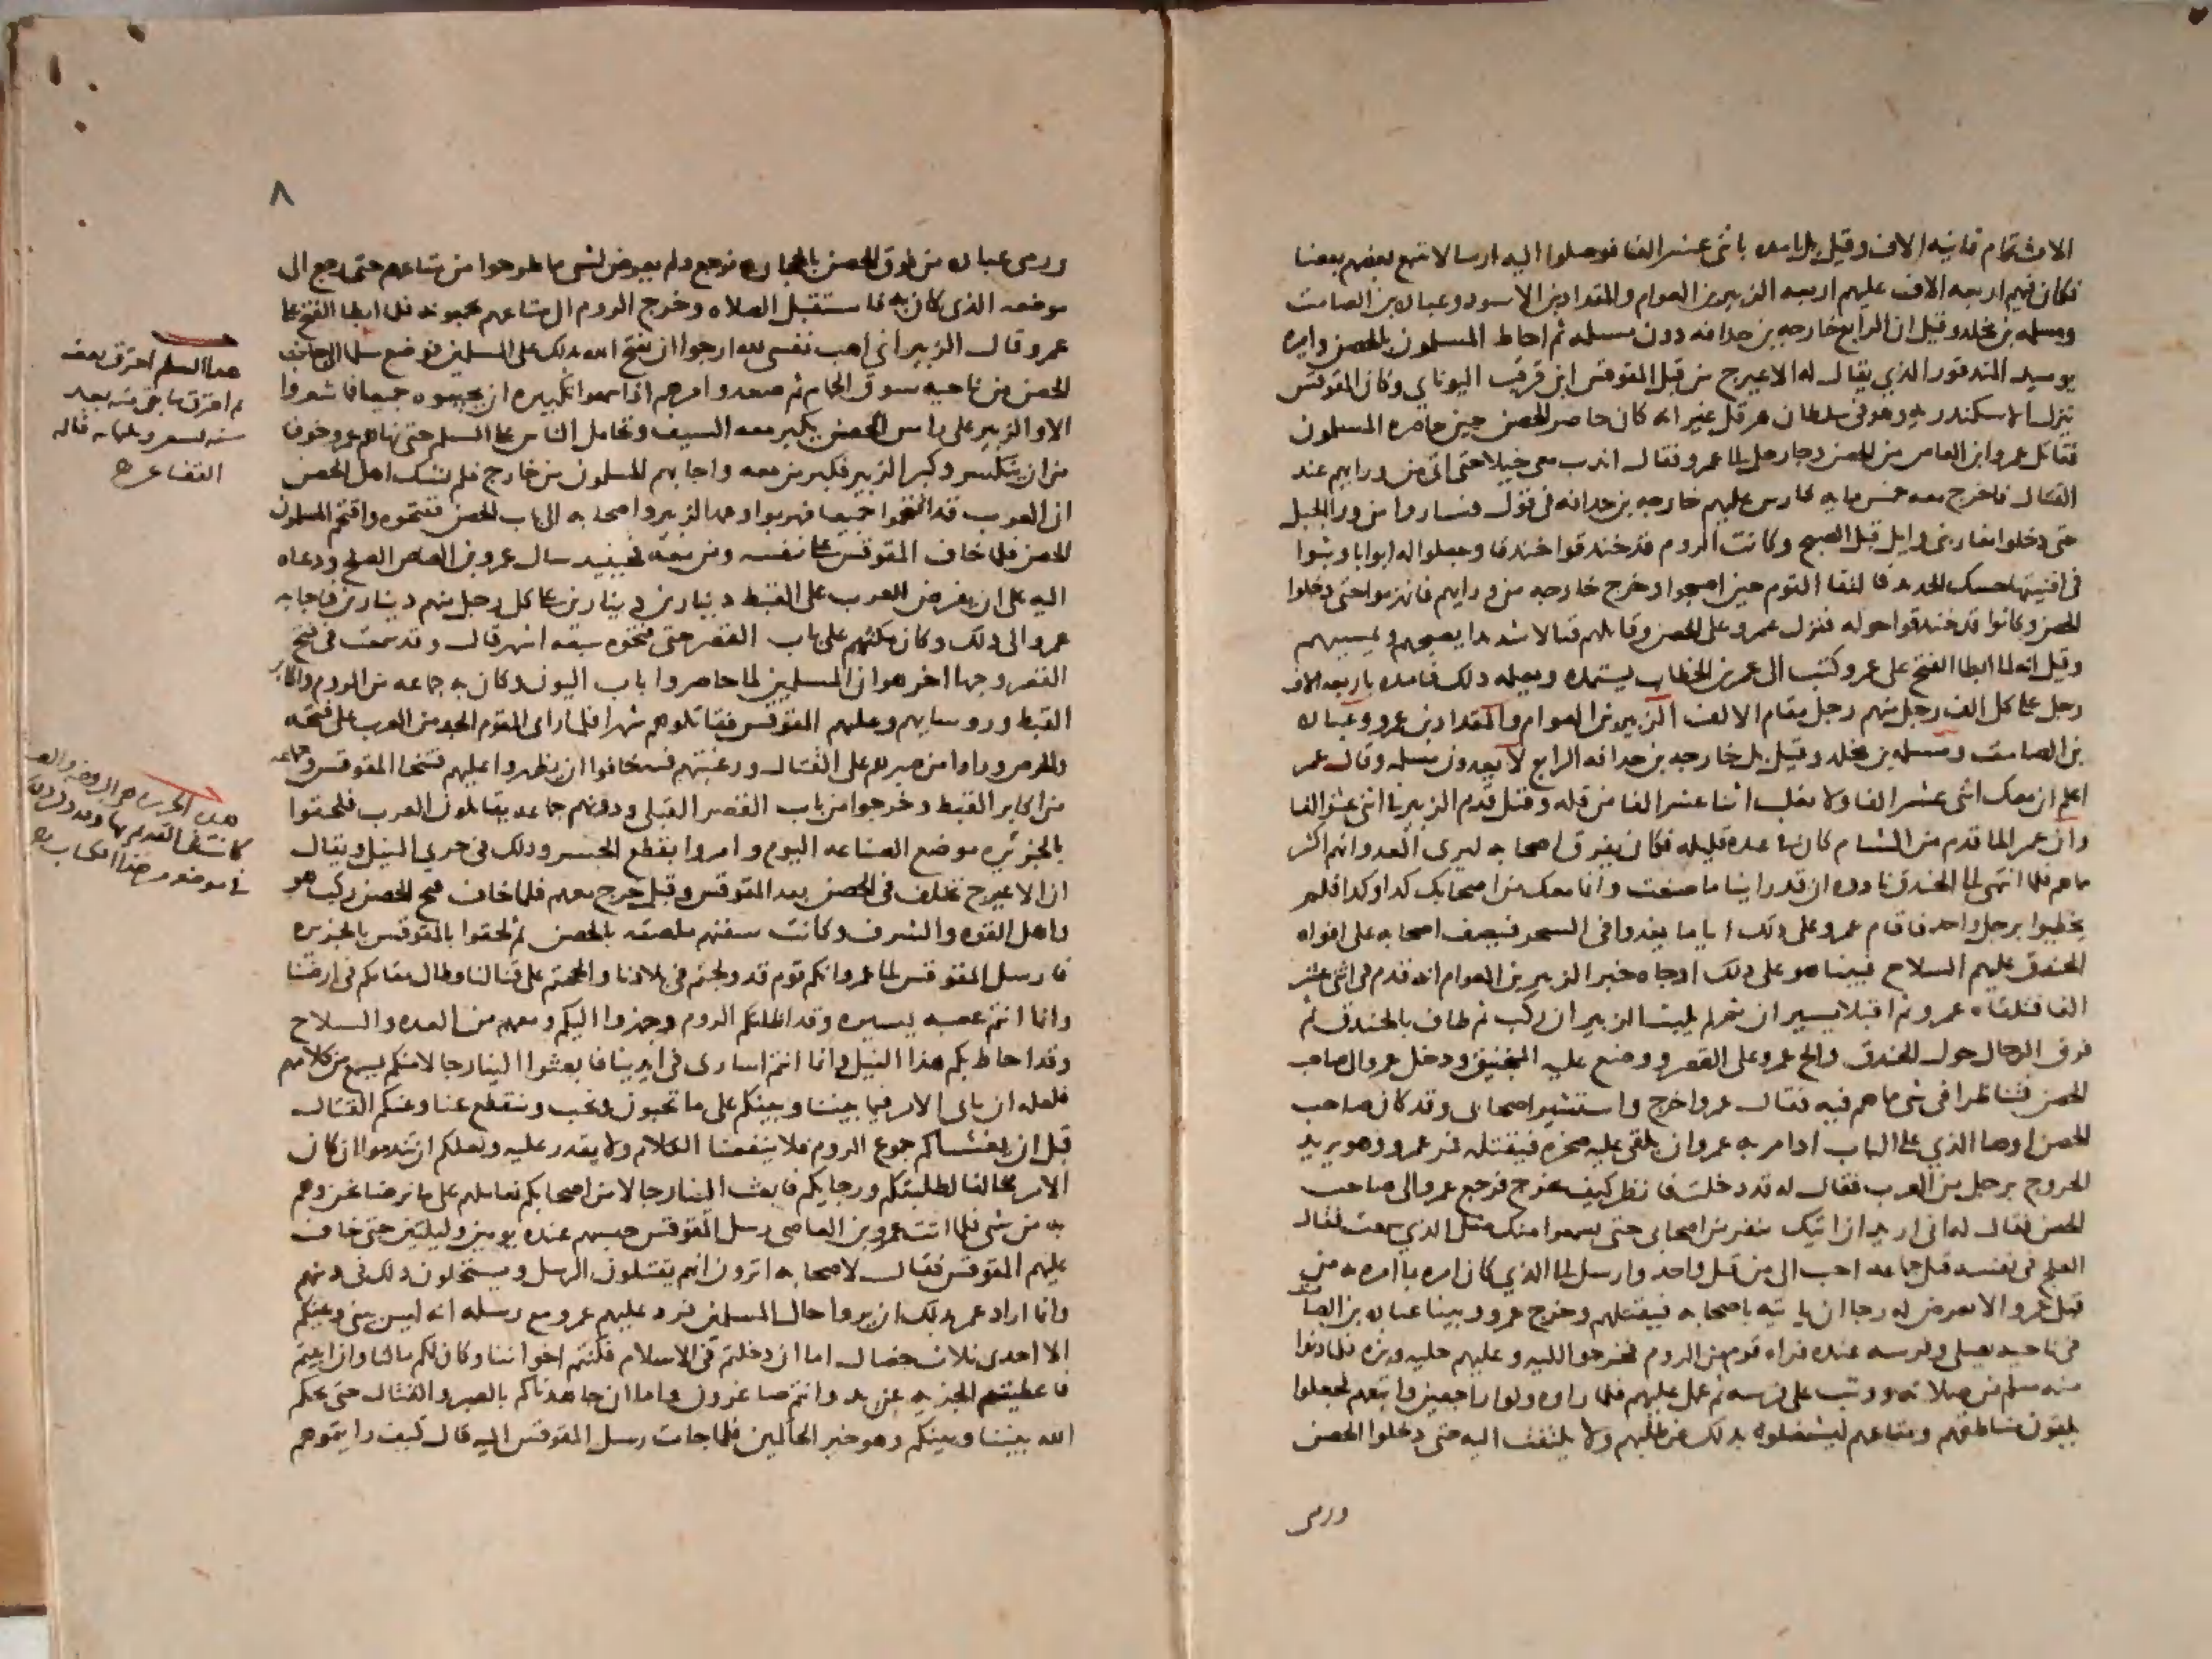 فكان فيهم اربعه الاف عليهم اربعه الزبير بن العوام والمقداد بن الاسود وعباده بن الصامت
ومسلمه بن مخلد وقيل ان الرابع خارجه بن حدافه دون مسلمه ثم احاط المسلمون بالحصن وامره
يوميد المندقور الذي يقال له الاعيرج من قبل المقوقس ابن قرقب اليوناني وكان المقوقس
ينزل الاسكندريه وهو في سلطان هرقل غير انه كان حاصر الحصن حين حاصره المسلمون
فقاتل عمرو ابن العاص من الحصن وجا رجل الى عمرو فقال اندب معي خيلا حتى اتي من ورايهم عند
القتال فاخرج معه خمس مايه فارس عليهم خارجه بن حدافه في قول فساروا من ورا الجبل
حتى دخلوا مغار بني وايل قبل الصبح وكانت الروم قد خندقوا خندقا وجعلوا له ابوابا وبثوا
في افنيتها حسك الحديد فالتقا القوم حين اصبحوا وخرج خارجه من ورايهم فانهزموا حتى دخلوا
الحصن وكانوا قد خندقوا حوله فنزل عمرو على الحصن وقاتلهم قتالا شديدا يصبحهم ويمسيهم
وقيل انه لما ابطا الفتح على عمرو كتب الى عمر بن الخطاب يستمده ويعلمه دلك فامده باربعه الاف
رجل على كل الف رجل منهم رجل مقام الالف الزبير بن العوام والمقداد بن عمرو وعباده
بن الصامت ومسلمه بن مخلد وقيل بل خارجه بن حدافه الرابع لا يعدون مسلمه وقال عمر
اعلم ان معك اثنى عشر الفا ولا يغلب اثنا عشر الفا من قله وقيل قدم الزبير في اثنى عشر الفا
وان عمرا لما قدم من الشام كان في عده قليله فكان يفرق اصحابه ليرى العدو انهم اكثر
ما هم فلما انتهى الى الخندق نادوه ان قد راينا ما صنعت وانما معك من اصحابك كدا وكدا فلم
يخطيوا برجل واحد فاقام عمرو على دلك اياما يغدوا في السحر فيصف اصحابه على افواه
الخندق عليهم السلاح فبينا هو على دلك اد جاه خبر الزبير بن العوام انه قدم في اثنى عشر
الفا فتلقاه عمرو ثم اقبلا يسيران ثم لم يلبث الزبير ان ركب ثم طاف بالخندق ثم
فرق الرجال حول الخندق والح عمرو على القصر ووضع عليه المنجنيق ودخل عمرو الى صاحب
الحصن فتناظرا في شي مما هم فيه فقال عمرو اخرج واستشير اصحابى وقد كان صاحب
الحصن اوصا الذي على الباب ادا مر به عمرو ان يلقى عليه صخره فيقتله فمر عمرو وهو يريد
الخروج برجل من العرب فقال له قد دخلت فانظر كيف تخرج فرجع عمرو الى صاحب
الحصن فقال له اني اريد ان اتيك بنفر من اصحابى حتى يسمعوا منك مثل الذي سمعت فقال
العلج في نفسه قتل جماعه احب الى من قتل واحد وارسل الى الذي كان امره بما امره به من
قتل عمرو الا تعرض له رجا ان ياتيه باصحابه فيقتلهم وخرج عمرو وبينا عباده بن الصامت
في ناحيه يصلى وفرسه عنده فراه قوم من الروم فخرجوا اليه وعليهم حليه وبزه فلما دنوا
منه سلم من صلاته ووثب على فرسه ثم حمل عليهم فلما راوه ولوا راجعين واتبعهم فجعلوا
يلقون مناطقهم ومتاعهم ليشغلوه بدلك عن طلبهم ولا يلتفت اليه حتى دخلوا الحصن
ورمى
٨
ورمى عباده من فوق الحصن بالحجاره فرجع ولم يعرض لشي مما طرحوا من متاعهم حتى رجع الى
موضعه الذى كان به فاستقبل الصلاه وخرج الروم الى متاعهم يجمعونه فلما ابطا الفتح على
عمرو قال الزبير اني اهب نفسي لله ارجوا ان يفتح الله بدلك على المسلمين فوضع سلما الى جانب
الحصن من ناحيه سوق الحمام ثم صعد وامرهم اذا سمعوا تكبيره ان يجيبوه جميعا فما شعروا
الا والزبير على راس الحصن يكبر معه السيف وتحامل الناس على السلم حتى نهاهم عمرو خوفا
من ان ينكسر وكبر الزبير فكبر من معه واجابهم المسلمون من خارج فلم يشك اهل الحصن
ان العرب قد اقتحموا جميعا فهربوا وعمد الزبير واصحابه الى باب الحصن ففتحوه واقتحم المسلمون
الحصن فلما خاف المقوقس على نفسه ومن معه فحينيد سال عمرو بن العاص الصلح ودعاه
اليه على ان يفرض للعرب على القبط دينارين دينارين على كل رجل منهم دينارين فاجابه
عمرو الى دلك وكان مكثهم على باب القصر حتى فتحوه سبعه اشهر قال وقد سمعت في فتح
القصر وجها اخر هو ان المسلمين لما حاصروا باب اليون وكان به جماعه من الروم واكابر
القبط وروسايهم وعليهم المقوقس فقاتلوهم شهرا فلما راى القوم الجد من العرب على فتحه
والحرص وراوا من صبرهم على القتال ورغبتهم فيه خافوا ان يظهروا عليهم فتنحا المقوقس وجماعه
من اكابر القبط وخرجوا من باب القصر القبلى ودونهم جماعه يقاتلون العرب فلحقوا
بالجزيره موضع الصناعه اليوم وامروا بقطع الجسر ودلك في جري النيل ويقال
ان الاعيرج تخلف في الحصن بعد المقوقس وقيل خرج معهم فلما خاف فتح الحصن ركب هو
واهل القوه والشرف وكانت سفنهم ملصقه بالحصن ثم لحقوا بالمقوقس بالجزيره
فارسل المقوقس الى عمرو انكم قوم قد ولجتم في بلادنا والححتم على قتالنا وطال مقامكم في ارضنا
وانما انتم عصبه يسيره وقد اظلتكم الروم وجهزوا اليكم ومعهم من العده والسلاح
وقد احاط بكم هذا النيل وانما انتم اسارى في ايدينا فابعثوا الينا رجالا منكم نسمع من كلامهم
فلعله ان ياتى الامر فيما بيننا وبينكم على ما تحبون ونحب وينقطع عنا وعنكم القتال
قبل ان يغشاكم جموع الروم فلا ينفعنا الكلام ولا يقدر عليه ولعلكم ان تندموا ان كان
الامر مخالفا لطلبتكم ورجايكم فابعث الينا رجالا من اصحابكم نعاملهم على ما نرضا نحن وهم
به من شي فلما اتت عمرو بن العاصى رسل المقوقس حبسهم عنده يومين وليلتين حتى خاف
عليهم المقوقس فقال لاصحابه اترون انهم يقتلون الرسل ويستحلون دلك في دينهم
وانما اراد عمرو بدلك ان يروا حال المسلمين فرد عليهم عمرو مع رسله انه ليس بيني وبينكم
الا احدى ثلاث خصال اما ان دخلتم في الاسلام فكنتم اخواننا وكان لكم مالنا وان ابيتم
فاعطيتم الجزيه عن يد وانتم صاغرون واما ان جاهدناكم بالصبر والقتال حتى يحكم
الله بيننا وبينكم وهو خير الحاكمين فلما جات رسل المقوقس اليه قال كيف رايتموهم
هدا السلم احترق بعضه
القضاعى